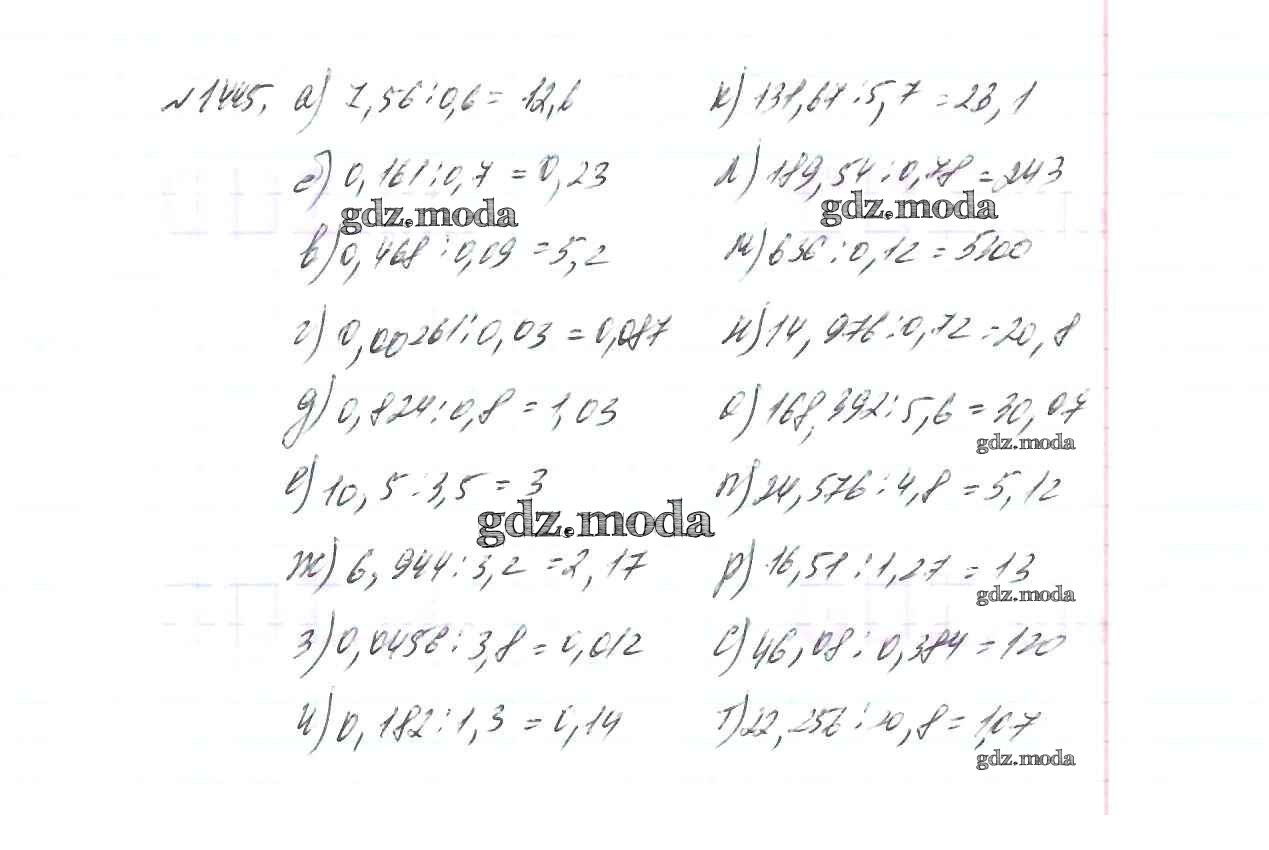 №1445. а) 7,56:0,6=12,6
б) 0,161:0,7=0,23
gdz.moda
в) 0,468:0,09=5,2
г) 0,00261:0,03=0,087
д) 0,824:0,8=1,03
е) 10,5:3,5=3
gdz.moda
ж) 6,944:3,2=2,17
з) 0,0456:3,8=0,012
и) 0,182:1,3=0,14
к) 131,67:5,7=23,1
л) 189,54:0,78=243
gdz.moda
м) 636:0,12=5300
н) 14,976:0,72=20,8
о) 168,392:5,6=30,07
gdz.moda
п) 24,576:4,8=5,12
р) 16,51:1,27=13
gdz.moda
с) 46,08:0,384=120
т) 22,256:20,8=1,07
gdz.moda